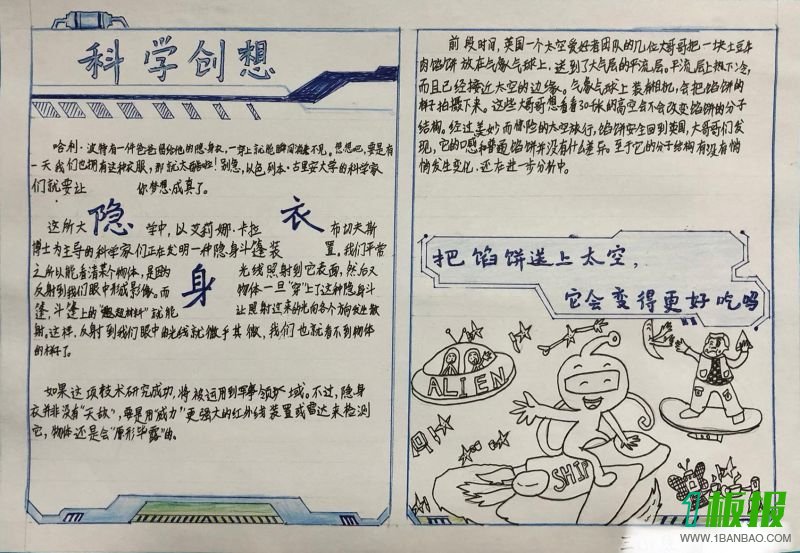 科学创想
哈利·波特有一件爸爸留给他的隐身衣，一穿上就能瞬间消失不见。想想吧，要是有
一天我们也拥有这种衣服，那就太酷啦！别急，以色列本·古里安大学的科学家
们就要让你梦想成真了。
隐
身
衣
这所大学中，以艾莉娜·卡拉布切夫斯
博士为主导的科学家们正在发明一种隐身斗篷装置。我们平常
之所以能看清某个物体，是因为光线照射到它表面，然后又
反射到我们眼中形成影像。而物体一旦"穿"上了这种隐身斗
篷，斗篷上的"超材料"就能让照射过来的光向各个方向发生散
射。这样，反射到我们眼中的光线就微乎其微，我们也就看不到物体
的样子了。
如果这项技术研究成功，将被运用到军事领域。不过，隐身
衣并非没有"天敌"，要是用"威力"更强大的红外线装置或雷达来检测
它，物体还是会"原形毕露"的。
前段时间，英国一个太空爱好者团队的几位大哥哥把一块土豆牛
肉馅饼放在气象气球上，送到了大气层的平流层。平流层上热下冷，
而且已经接近太空的边缘。气象气球上装有相机，会把馅饼的
样子拍摄下来。这些大哥哥想看看30千米的高空会不会改变馅饼的分子
结构。经过美妙而惊险的太空旅行，馅饼安全回到英国，大哥哥们发
现，它的口感和普通馅饼并没有什么差异。至于它的分子结构有没有悄
悄发生变化，还在进一步分析中。
把馅饼送上太空，
它会变得更好吃吗
ALIEN
SHIP
1板报
WWW.1BANBAO.COM